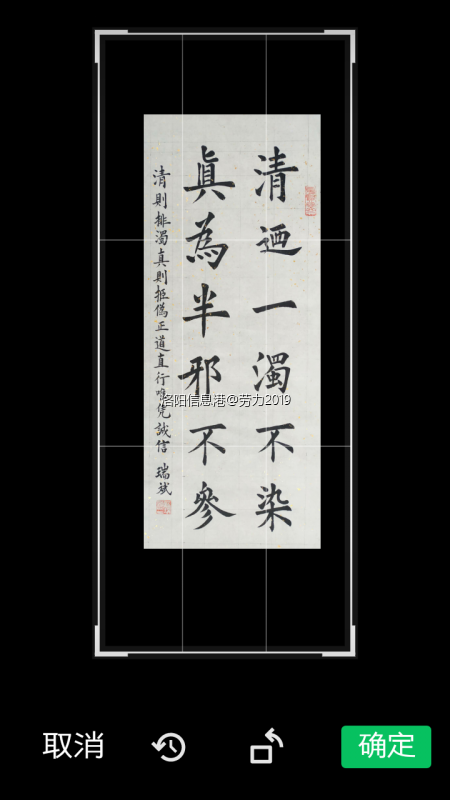 清迺一濁不染
真為半邪不參
清則排濁真則拒偽正道直行唯凭誠信 瑞斌
洛阳信息港@劳力2019
取消
确定